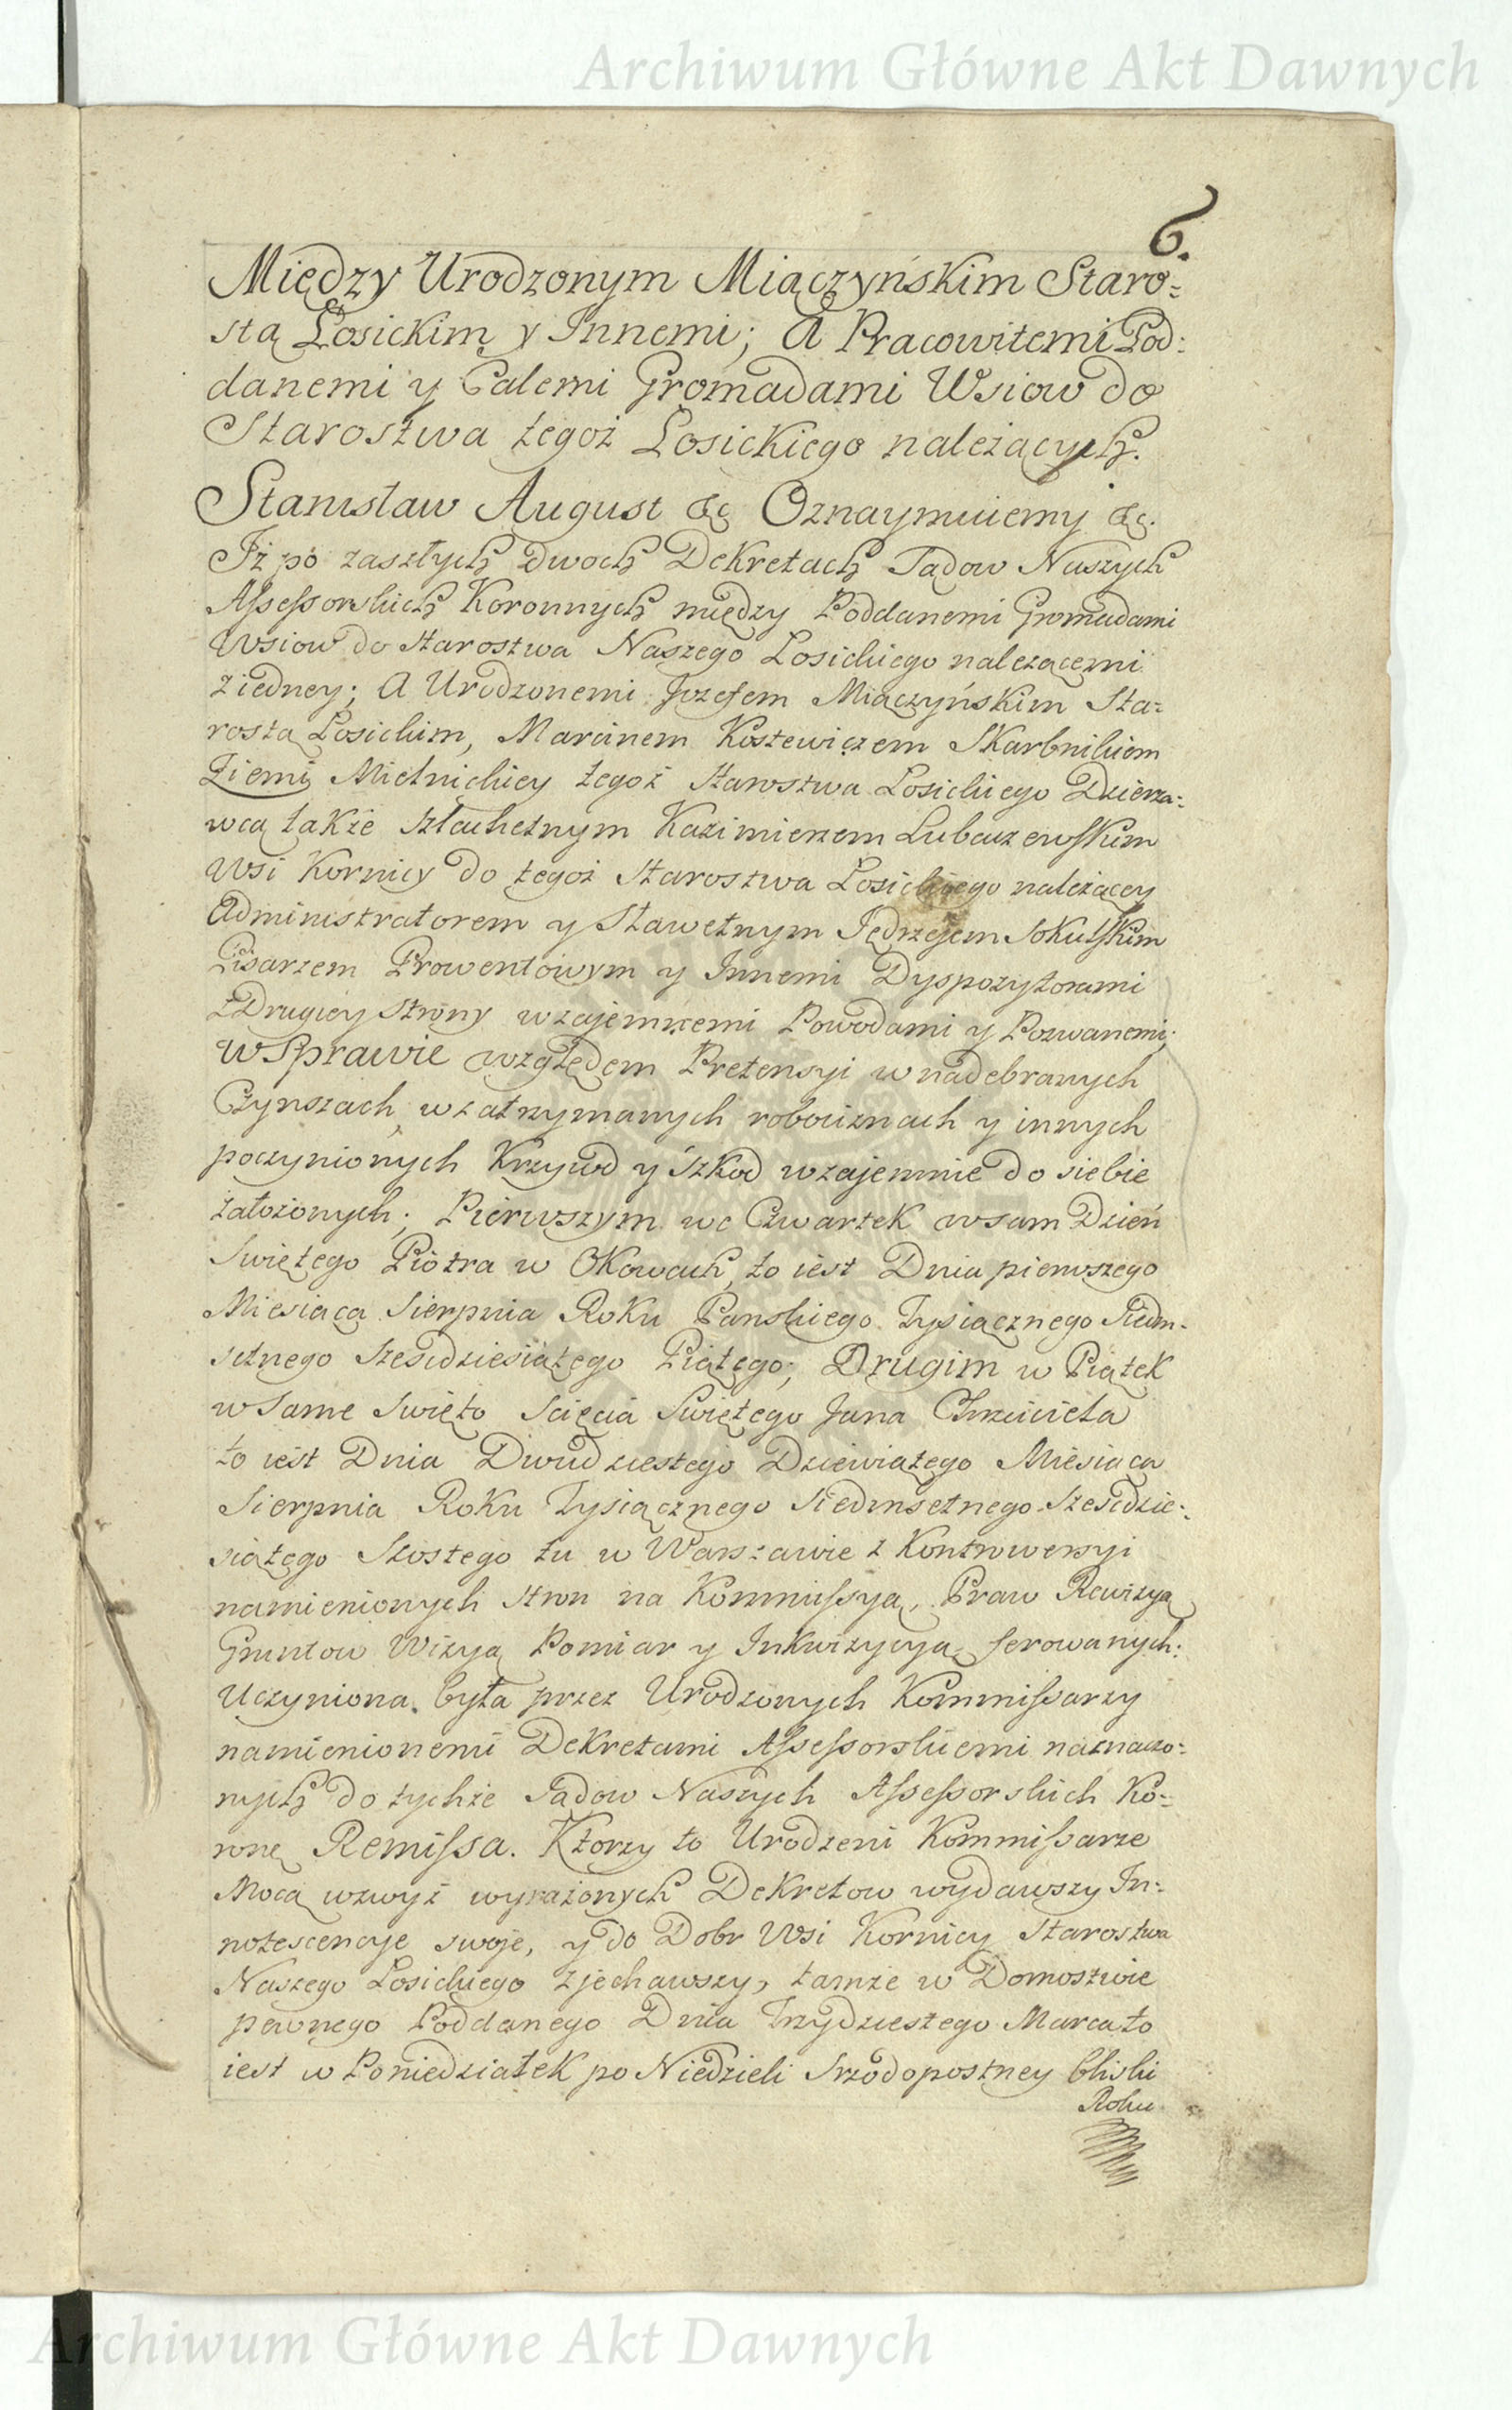 Archiwum Główne Akt Dawnych
6.
Między Urodzonym Miączyńskim Staro=
stą Łosickim y Innemi; A Pracowitemi Pod=
danemi y Całemi Gromadami Wsiow do
Starostwa tegoż Łosickiego należących.
Stanisław August &c Oznaymuiemy &c.
Iż po zaszłych dwoch Dekretach Sądow Naszych
Assessorskich Koronnych między Poddanemi Gromadami
Wsiow do Starostwa Naszego Łosickiego należącemi
z iedney; A Urodzonemi Jozefem Miączyńskim Sta=
rostą Łosickim, Marcinem Kostewiczem Skarbnikiem
Ziemi Mielnickiey tegoż Starostwa Łosickiego Dzierża=
wcą także Szlachetnym Kazimierzem Lubaszewskim
Wsi Kornicy do tegoż Starostwa Łosickiego należącey
Administratorem y Sławetnym Jędrzejem Sokulskim
Pisarzem Prowentowym y Innemi Dyspozytorami
z Drugiey Strony wzajemnemi Powodami y Pozwanemi;
W Sprawie względem Pretensyi w nadebranych
Czynszach, w zatrzymanych robociznach y innych
poczynionych Krzywd y Szkod wzajemnie do siebie
załozonych; Pierwszym we Czwartek w sam Dzień
Swiętego Piotra w Okowach, to iest Dnia pierwszego
Miesiąca Sierpnia Roku Panskiego Tysiącznego Siedm=
setnego Szescdziesiątego Piątego; Drugim w Piątek
w Same Swięto Scięcia Swiętego Jana Chrzciciela
to iest Dnia Dwudziestego Dziewiątego Miesiąca
Sierpnia Roku Tysiącznego Siedmsetnego Szescdzie=
siątego Szostego tu w Warszawie z Kontrowersyi
namienionych Stron na Kommissyą, Praw Rewizyą
Gruntow Wizyą Pomiar y Inkwizycyą ferowanych:
Uczyniona była przez Urodzonych Kommissarzy
namienionemi Dekretami Assessorskiemi naznaczo=
nych do tychże Sądow Naszych Assessorskich Ko=
ronę Remissa. Ktorzy to Urodzeni Kommissarze
Mocą wzwyż wyrażonych Dekretow wydawszy In=
notescencye swoje, y do Dobr Wsi Kornicy Starostwa
Naszego Łosickiego zjechawszy, tamże w Domostwie
pewnego Poddanego Dnia Trzydziestego Marca to
iest w Poniedziałek po Niedzieli Srzodopostney blisko
Roku
Archiwum Główne Akt Dawnych